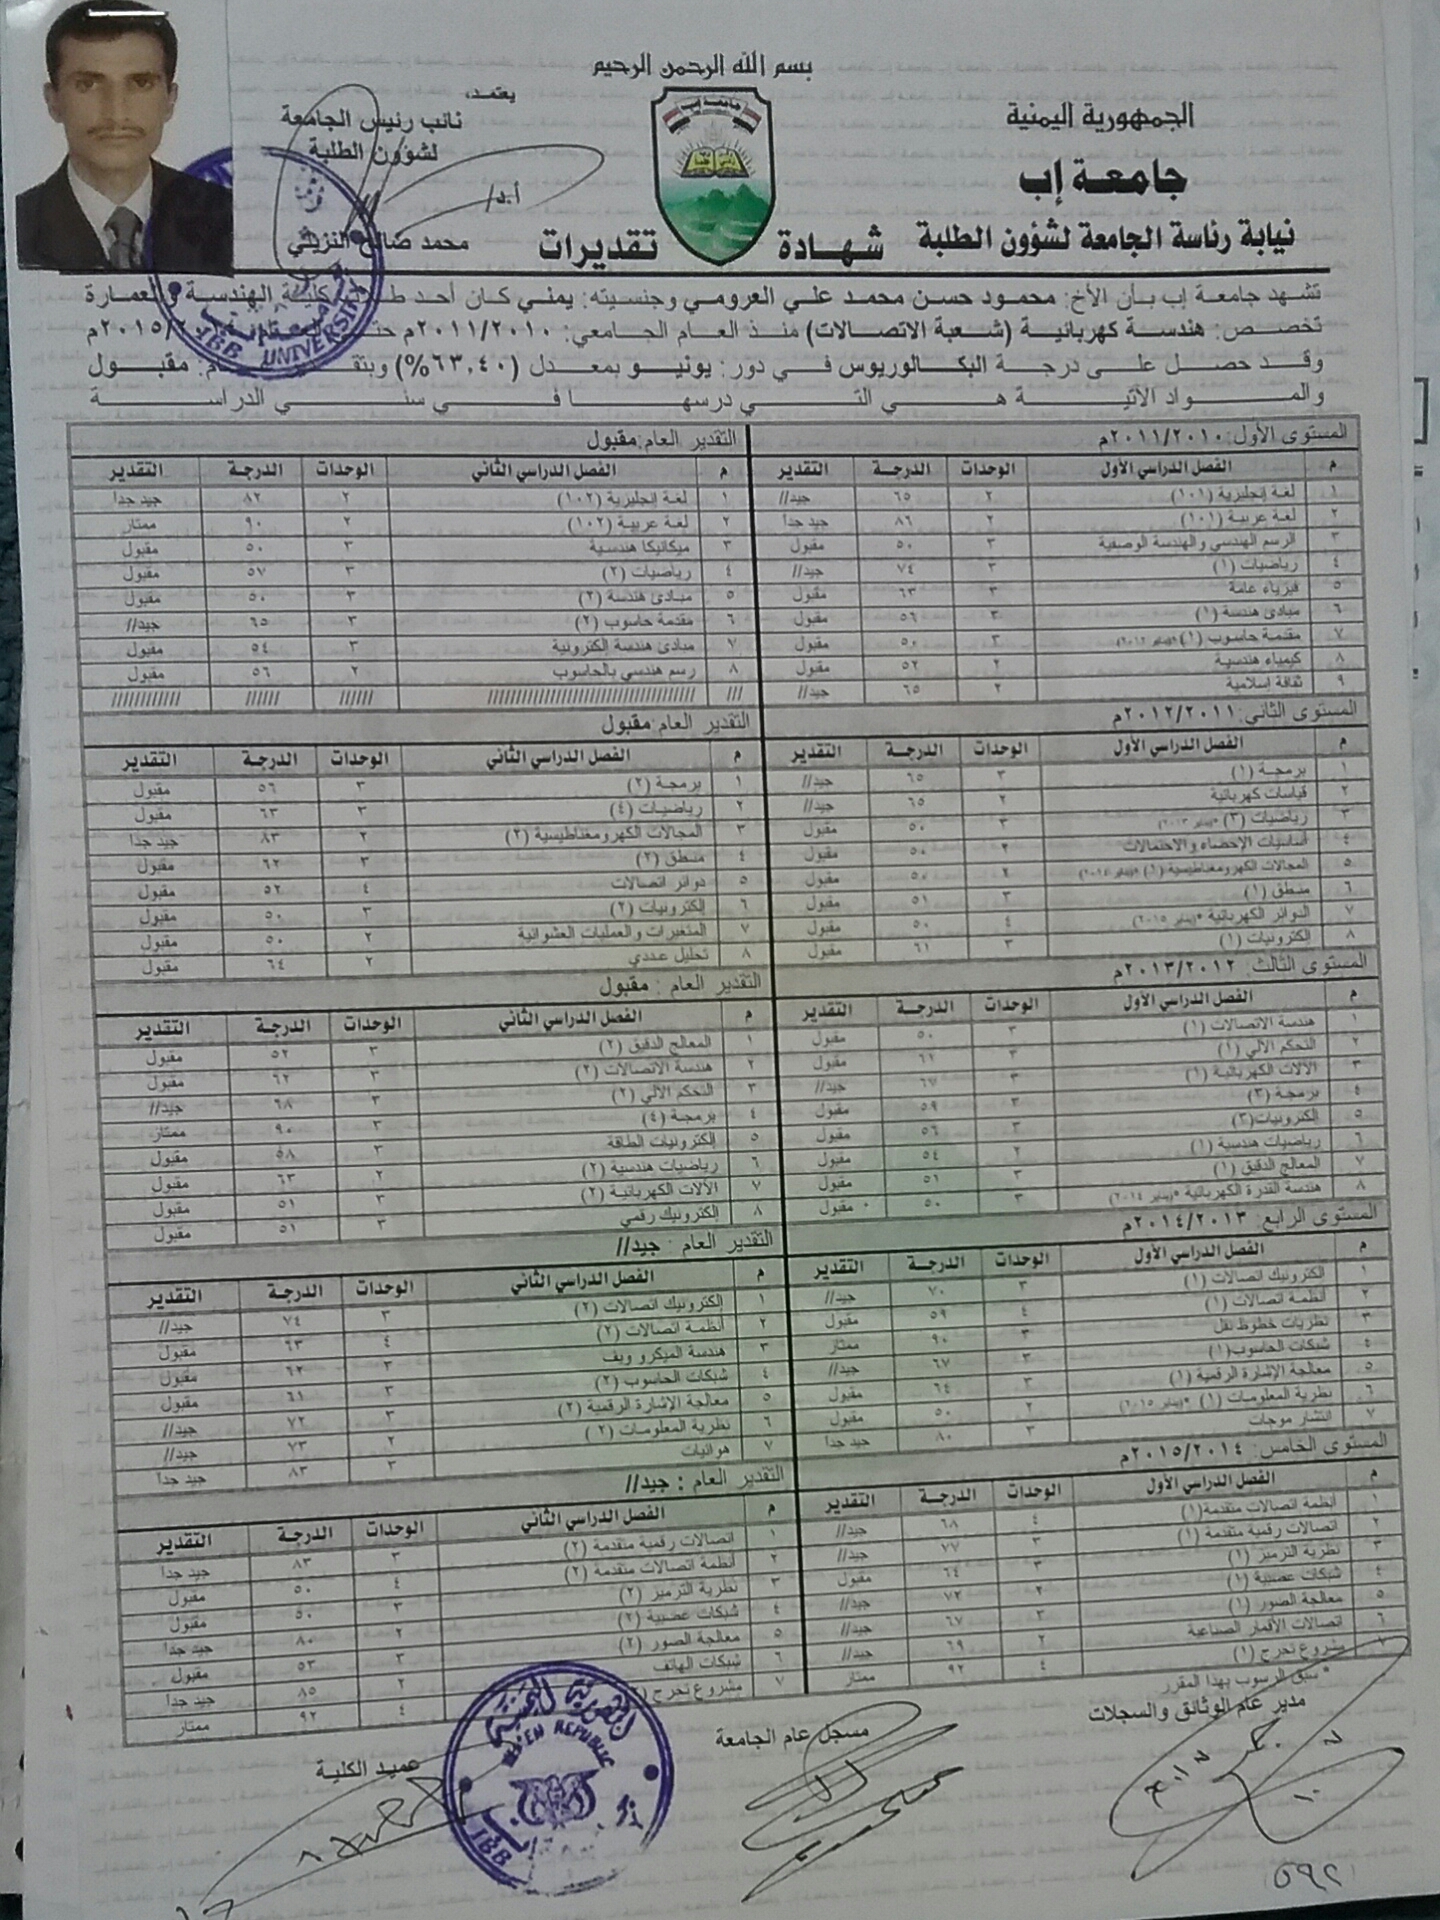 بسم الله الرحمن الرحيم
الجمهورية اليمنية
جامعة إب
نيابة رئاسة الجامعة لشؤون الطلبة
جامعة إب
شهادة تقديرات
يعتمد،
نائب رئيس الجامعة
لشؤون الطلبة
أ.د/
محمد صالح النزيلي
تشهد جامعة إب بأن الأخ: محمود حسن محمد علي العرومي وجنسيته: يمني كان أحد كلية الهندسة والعمارة
تخصص: هندسة كهربائية (شعبة الاتصالات) منذ العام الجامعي: ٢٠١١/٢٠١٠م ٢٠١٥/م
وقد حصل على درجة البكالوريوس في دور: يونيو بمعدل (٦٣,٤٠%) مقبول
والمواد الآتية هي التي درسها في سني الدراسة
المستوى الأول: ٢٠١١/٢٠١٠م التقدير العام: مقبول
م الفصل الدراسي الأول الوحدات الدرجة التقدير م الفصل الدراسي الثاني الوحدات الدرجة التقدير
١ لغة إنجليزية (١٠١) ٢ ٦٥ جيد// ١ لغة إنجليزية (١٠٢) ٢ ٨٢ جيد جداً
٢ لغة عربية (١٠١) ٢ ٨٦ جيد جداً ٢ لغة عربية (١٠٢) ٢ ٩٠ ممتاز
٣ الرسم الهندسي والهندسة الوصفية ٣ ٥٠ مقبول ٣ ميكانيكا هندسية ٣ ٥٠ مقبول
٤ رياضيات (١) ٣ ٧٤ جيد// ٤ رياضيات (٢) ٣ ٥٧ مقبول
٥ فيزياء عامة ٣ ٦٣ مقبول ٥ مبادئ هندسة (٢) ٣ ٥٠ مقبول
٦ مبادئ هندسة (١) ٣ ٥٦ مقبول ٦ مقدمة حاسوب (٢) ٣ ٦٥ جيد//
٧ مقدمة حاسوب (١) ٣ ٥٠ مقبول ٧ مبادئ هندسة إلكترونية ٣ ٥٤ مقبول
٨ كيمياء هندسية ٢ ٥٢ مقبول ٨ رسم هندسي بالحاسوب ٢ ٥٦ مقبول
٩ ثقافة إسلامية ٢ ٦٥ جيد//
المستوى الثاني: ٢٠١٢/٢٠١١م التقدير العام: مقبول
م الفصل الدراسي الأول الوحدات الدرجة التقدير م الفصل الدراسي الثاني الوحدات الدرجة التقدير
١ برمجة (١) ٣ ٦٥ جيد// ١ برمجة (٢) ٣ ٥٦ مقبول
٢ قياسات كهربائية ٢ ٦٥ جيد// ٢ رياضيات (٤) ٣ ٦٣ مقبول
٣ رياضيات (٣) *(يناير ٢٠١٣) ٣ ٥٠ مقبول ٣ المجالات الكهرومغناطيسية (٢) ٢ ٨٣ جيد جداً
٤ أساسيات الإحصاء والاحتمالات ٢ ٥٠ مقبول ٤ منطق (٢) ٣ ٦٢ مقبول
٥ المجالات الكهرومغناطيسية (١) *(يناير ٢٠١٤) ٢ ٥٠ مقبول ٥ دوائر اتصالات ٤ ٥٢ مقبول
٦ منطق (١) ٣ ٥١ مقبول ٦ إلكترونيات (٢) ٣ ٥٠ مقبول
٧ الدوائر الكهربائية *(يناير ٢٠١٥) ٤ ٥٠ مقبول ٧ المتغيرات والعمليات العشوائية ٢ ٥٠ مقبول
٨ إلكترونيات (١) ٣ ٦١ مقبول ٨ تحليل عددي ٢ ٦٤ مقبول
المستوى الثالث: ٢٠١٣/٢٠١٢م التقدير العام: مقبول
م الفصل الدراسي الأول الوحدات الدرجة التقدير م الفصل الدراسي الثاني الوحدات الدرجة التقدير
١ هندسة الاتصالات (١) ٣ ٥٠ مقبول ١ المعالج الدقيق (٢) ٣ ٥٢ مقبول
٢ التحكم الآلي (١) ٣ ٦١ مقبول ٢ هندسة الاتصالات (٢) ٣ ٦٢ مقبول
٣ الآلات الكهربائية (١) ٣ ٦٧ جيد// ٣ التحكم الآلي (٢) ٣ ٦٨ جيد//
٤ برمجة (٣) ٣ ٥٩ مقبول ٤ برمجة (٤) ٣ ٩٠ ممتاز
٥ إلكترونيات(٣) ٣ ٥٦ مقبول ٥ إلكترونيات الطاقة ٣ ٥٨ مقبول
٦ رياضيات هندسية (١) ٢ ٥٤ مقبول ٦ رياضيات هندسية (٢) ٢ ٦٣ مقبول
٧ المعالج الدقيق (١) ٣ ٥١ مقبول ٧ الآلات الكهربائية (٢) ٣ ٥١ مقبول
٨ هندسة القدرة الكهربائية *(يناير ٢٠١٤) ٣ ٥٠ مقبول ٨ إلكترونيك رقمي ٣ ٥١ مقبول
المستوى الرابع: ٢٠١٤/٢٠١٣م التقدير العام: جيد//
م الفصل الدراسي الأول الوحدات الدرجة التقدير م الفصل الدراسي الثاني الوحدات الدرجة التقدير
١ إلكترونيك اتصالات (١) ٣ ٧٠ جيد// ١ إلكترونيك اتصالات (٢) ٣ ٧٤ جيد//
٢ أنظمة اتصالات (١) ٤ ٥٩ مقبول ٢ أنظمة اتصالات (٢) ٤ ٦٣ مقبول
٣ نظريات خطوط نقل ٣ ٩٠ ممتاز ٣ هندسة الميكرو ويف ٣ ٦٢ مقبول
٤ شبكات الحاسوب(١) ٣ ٦٧ جيد// ٤ شبكات الحاسوب (٢) ٣ ٦١ مقبول
٥ معالجة الإشارة الرقمية (١) ٣ ٦٤ مقبول ٥ معالجة الإشارة الرقمية (٢) ٣ ٧٢ جيد//
٦ نظرية المعلومات (١) *(يناير ٢٠١٥) ٢ ٥٠ مقبول ٦ نظرية المعلومات (٢) ٢ ٧٣ جيد//
٧ انتشار موجات ٣ ٨٠ جيد جداً ٧ هوائيات ٣ ٨٣ جيد جداً
المستوى الخامس: ٢٠١٥/٢٠١٤م التقدير العام: جيد//
م الفصل الدراسي الأول الوحدات الدرجة التقدير م الفصل الدراسي الثاني الوحدات الدرجة التقدير
١ أنظمة اتصالات متقدمة(١) ٤ ٦٨ جيد// ١ اتصالات رقمية متقدمة (٢) ٣ ٨٣ جيد جداً
٢ اتصالات رقمية متقدمة (١) ٣ ٧٧ جيد// ٢ أنظمة اتصالات متقدمة (٢) ٤ ٥٠ مقبول
٣ نظرية الترميز (١) ٣ ٦٤ مقبول ٣ نظرية الترميز (٢) ٣ ٥٠ مقبول
٤ شبكات عصبية (١) ٢ ٧٢ جيد// ٤ شبكات عصبية (٢) ٢ ٨٠ جيد جداً
٥ معالجة الصور (١) ٣ ٦٧ جيد// ٥ معالجة الصور (٢) ٣ ٥٣ مقبول
٦ اتصالات الأقمار الصناعية ٢ ٦٩ جيد// ٦ شبكات الهاتف ٢ ٨٥ جيد جداً
٧ مشروع تخرج (١) ٤ ٩٢ ممتاز ٧ مشروع تخرج ٤ ٩٢ ممتاز
* سبق الرسوب بهذا المقرر
مدير عام الوثائق والسجلات
مسجل عام الجامعة
عميد الكلية
IBB UNIVERSITY
YEMEN REPUBLIC
IBB